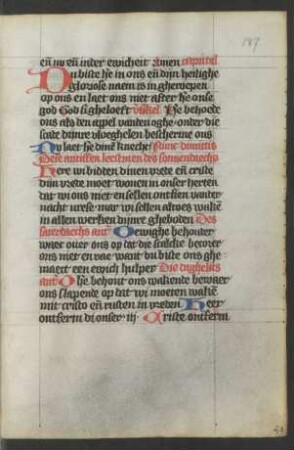 187
en nu en in der ewicheit Amen Capittel
Du biste he in ons en dijn heilighe
gloriose naem is in gheroepen
op ons en laet ons niet after he onse
god God si gheloeft Versikel. He behoede
ons als den appel vanden oghe onder die
scade dijnre vloeghelen bescherme ons
Nu laet he dine knecht Nunc dimittis
Dese antiffen leestmen des sonnendaechs
Here wi bidden dinen vrede en criste
dijn vrede moet wonen in onser herten
dat wi ons niet en sellen ontsien vander
nacht vrese mar wi sellen altoes wakē
in allen werken dijnre gheboden Des
saterdaechs ant Oewighe behouder
waer over ons op dat die scalcke becorer
ons niet en vae want du biste ons ghe
maect een ewich hulper Die daghelics
ant O he behout ons wakende bewaer
ons slapende op dat wi moeten wakē
mit cristo en rusten in vreden Heer
ontferm di onser iij Criste ontferm